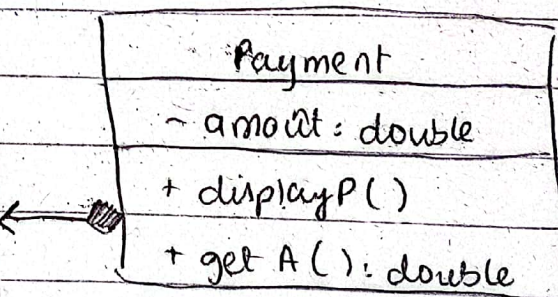 Payment
- amoût: double
+ displayP()
+ get A(): double